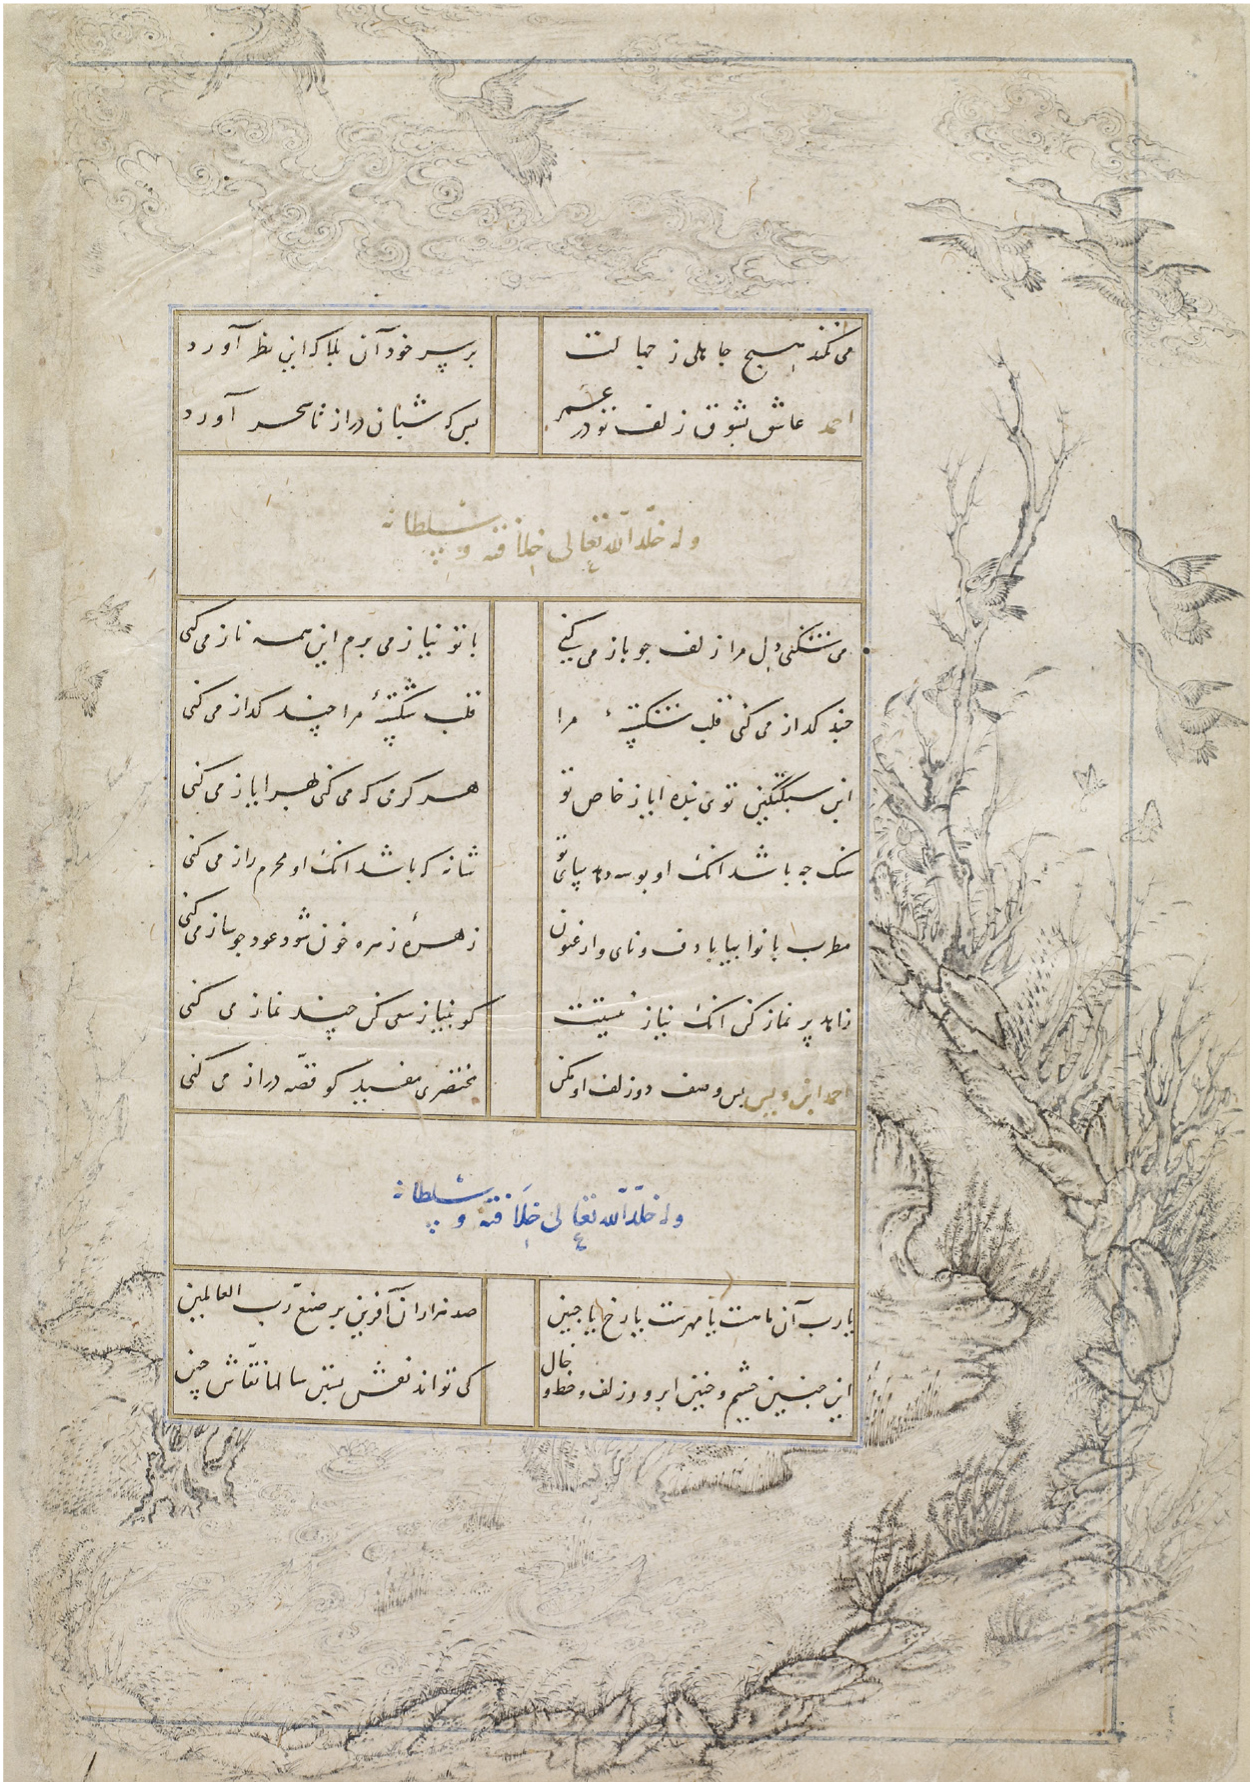 می‌نکند هیچ جاهلی ز جهالت بر سر خود آن بلا که این نظر آورد
احمد عاشق بشوق زلف تو در عمر بس که شبان دراز تا سحر آورد
وله خلّد اللّه تعالی خلافته و سلطانه
می‌شکنی دل مرا زلف چو باز می‌کنی با تو نیاز می‌برم این همه ناز می‌کنی
چند گداز می‌کنی قلب شکستهٔ مرا قلب شکستهٔ مرا چند گداز می‌کنی
ابن سبکتگین توی بنده ایاز خاص تو هر کرمی که می‌کنی بهر ایاز می‌کنی
سنگ چه باشد انک او بوسه دهد بپای تو شانه که باشد انک او محرم راز می‌کنی
مطرب با نوا بیا با دف و نای و ارغنون زهرهٔ زهره خون شود عود چو ساز می‌کنی
زاهد پر نماز کن انک نیاز نیستت کو بنیاز سعی کن چند نماز می کنی
احمد ابن ویس بس وصف دو زلف او مکن مختصری مفید کو قصّه دراز می کنی
وله خلّد اللّه تعالی خلافته و سلطانه
یا رب آن ماهست یا مهرست یا رخ یا جبین صد هزاران آفرین بر صنع ربّ العالمین
این چنین چشم و چنین ابرو و زلف و خط و خال کی تواند نقش بستن سالها نقّاش چین